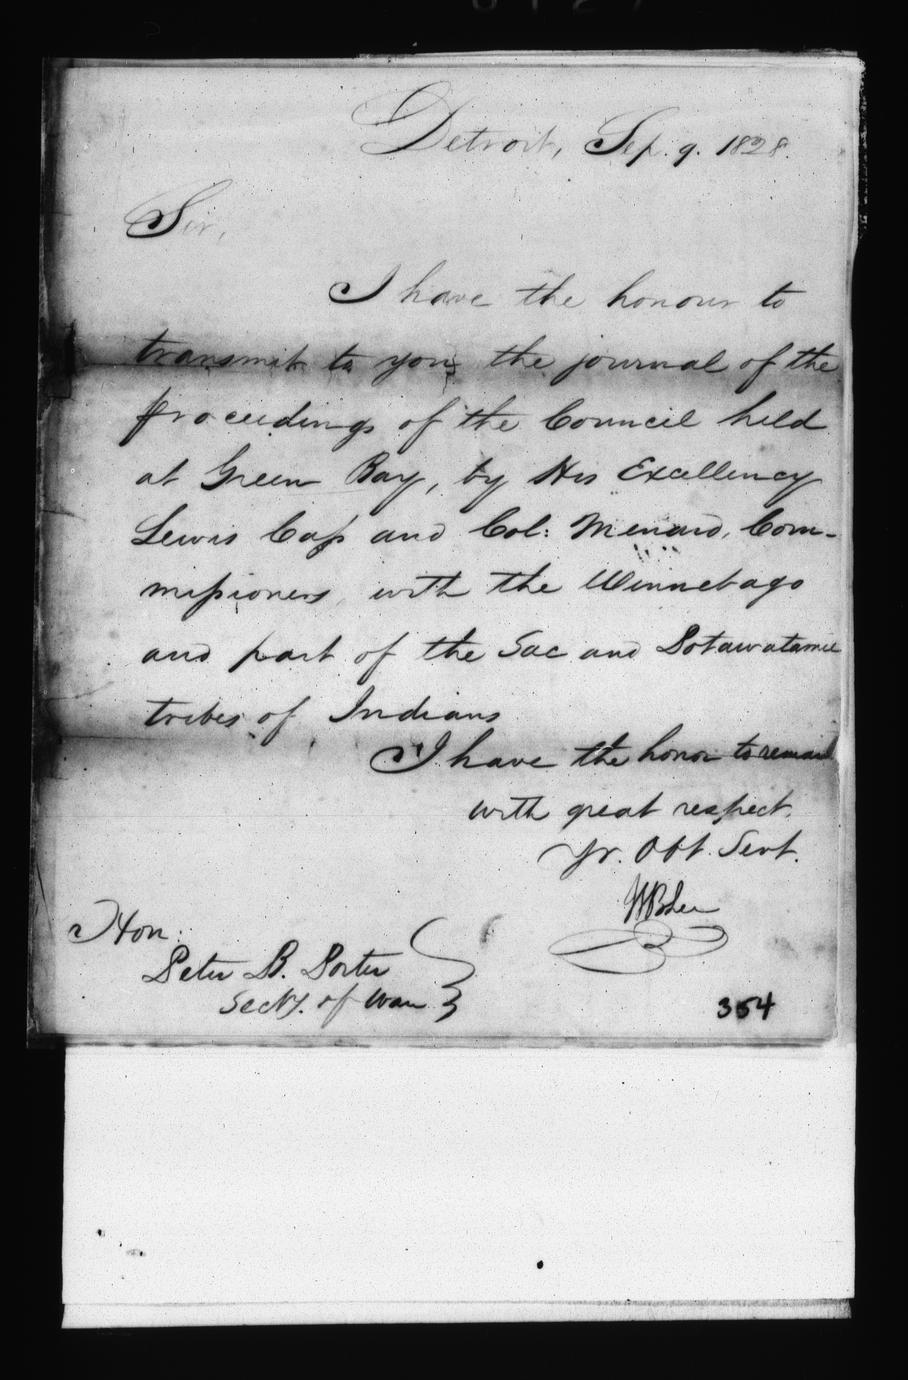 Detroit, Sep. 9. 1828.
Sir,
I have the honour to
transmit to you, the journal of the
proceedings of the Council held
at Green Bay, by His Excellency
Lewis Cass and Col: Menard, Com-
missioners, with the Winnebago
and part of the Sac and Potawatamie
tribes of Indians
I have the honor to remain
with great respect.
Yr. Obt. Servt.
WB Lee
Hon:
Peter B. Porter
Secty. of War
354